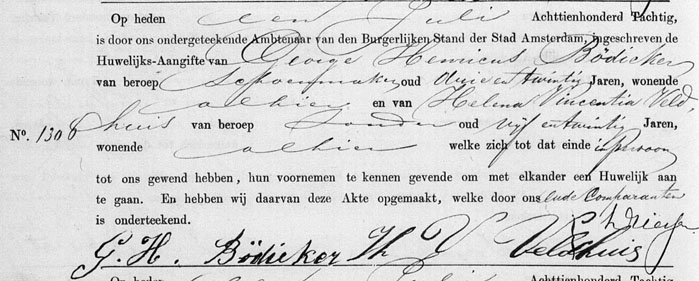 Op heden een Juli Achttienhonderd Tachtig,
is door ons ondergeteekende Ambtenaar van den Burgerlijken Stand der Stad Amsterdam, ingeschreven de
Huwelijks-Aangifte van George Henricus Bödicker
van beroep Schoenmaker oud drie en twintig Jaren, wonende
alhier en van Helena Vincentia Veld,
No. 1308 huis van beroep zonder oud vijf en twintig Jaren,
wonende alhier welke zich tot dat einde in persoon
tot ons gewend hebben, hun voornemen te kennen gevende om met elkander een Huwelijk aan
te gaan. En hebben wij daarvan deze Akte opgemaakt, welke door ons, beide Comparanten
is onderteekend.
G. H. Bödicker V Veldhuis
Op heden Achttienhonderd Tachtig,